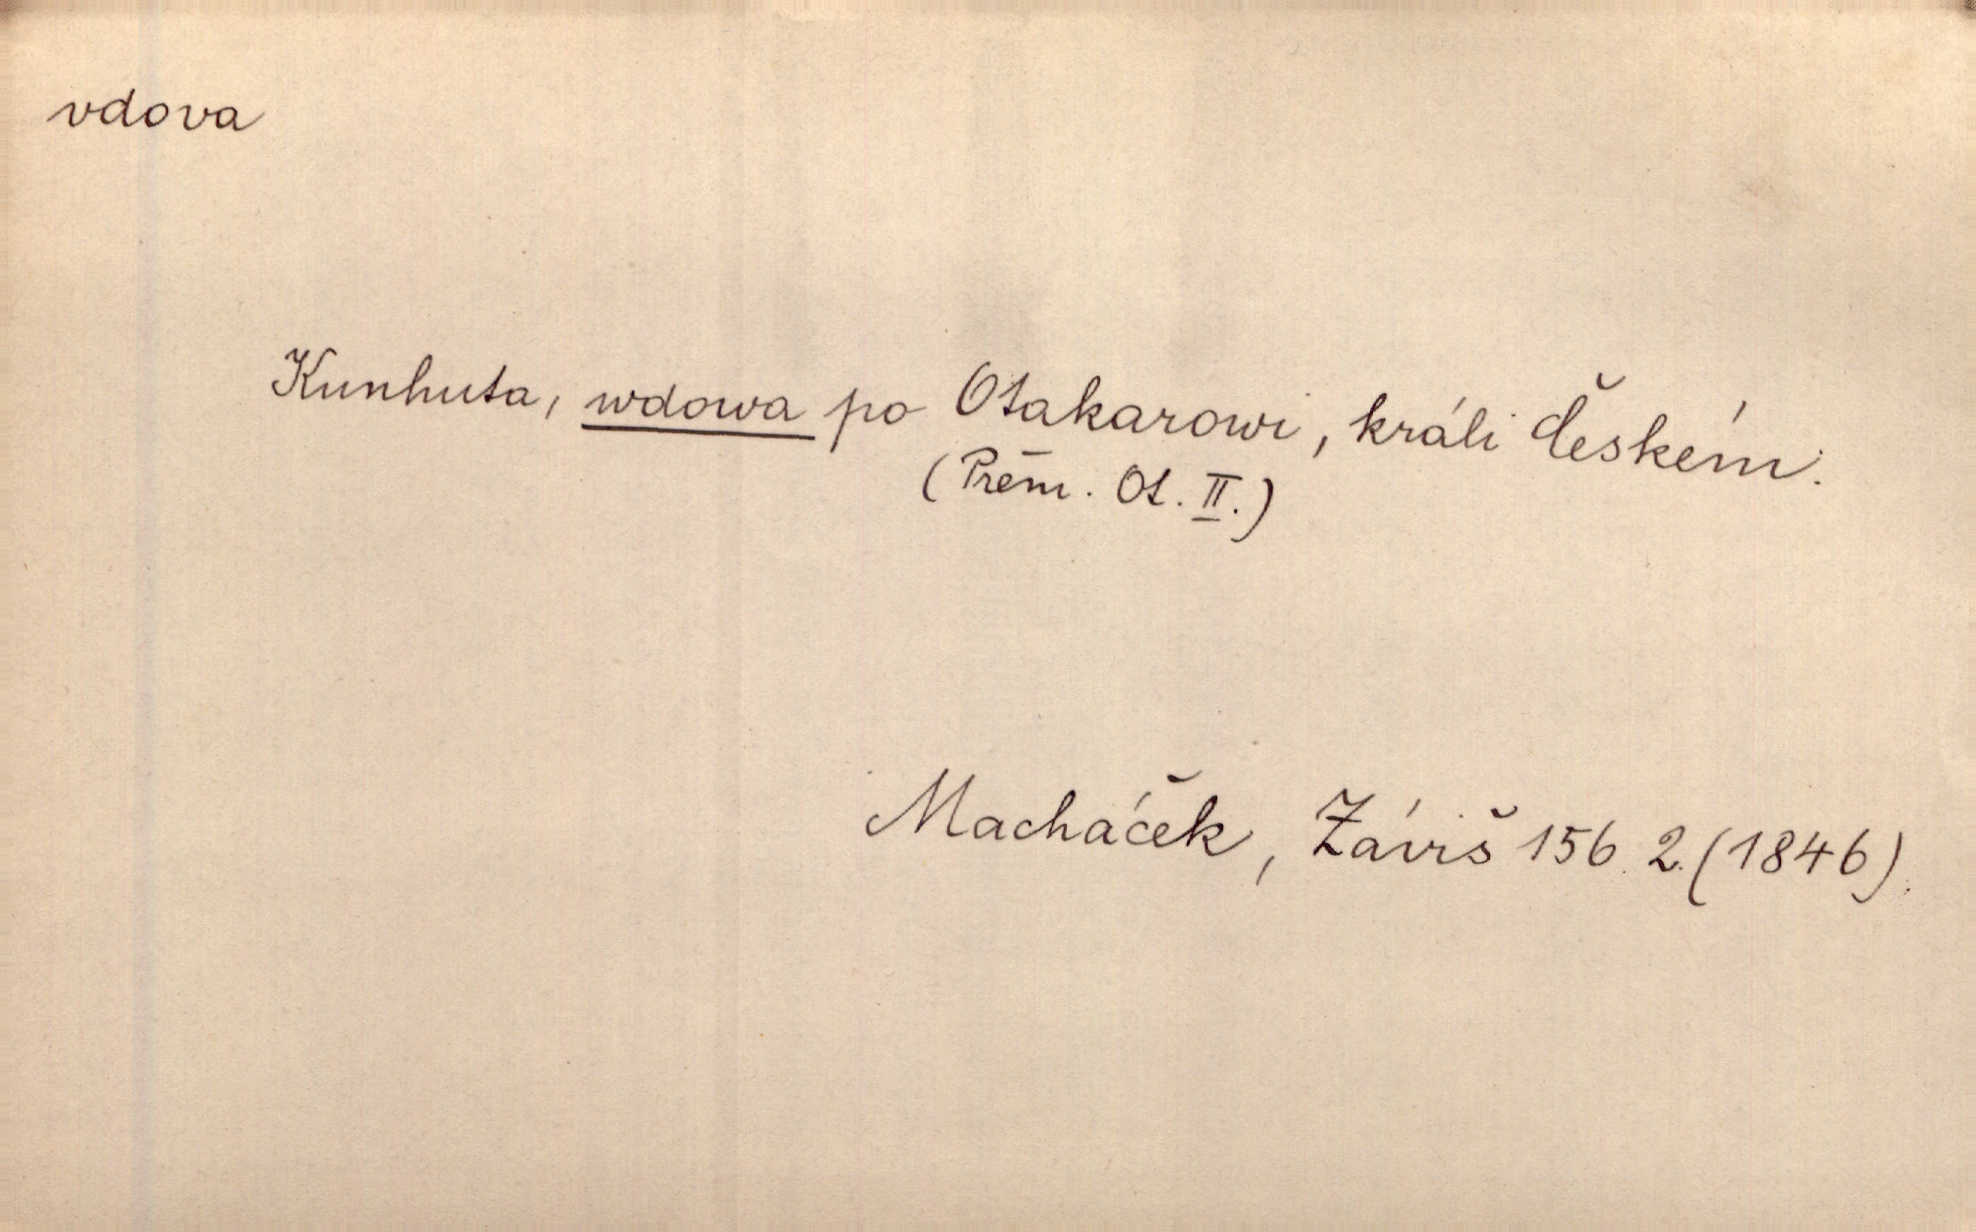 vdova
Kunhuta, wdowa po Otakarowi, králi českém.
(Přem. Ot. II.)
Macháček, Záviš 156. 2. (1846).